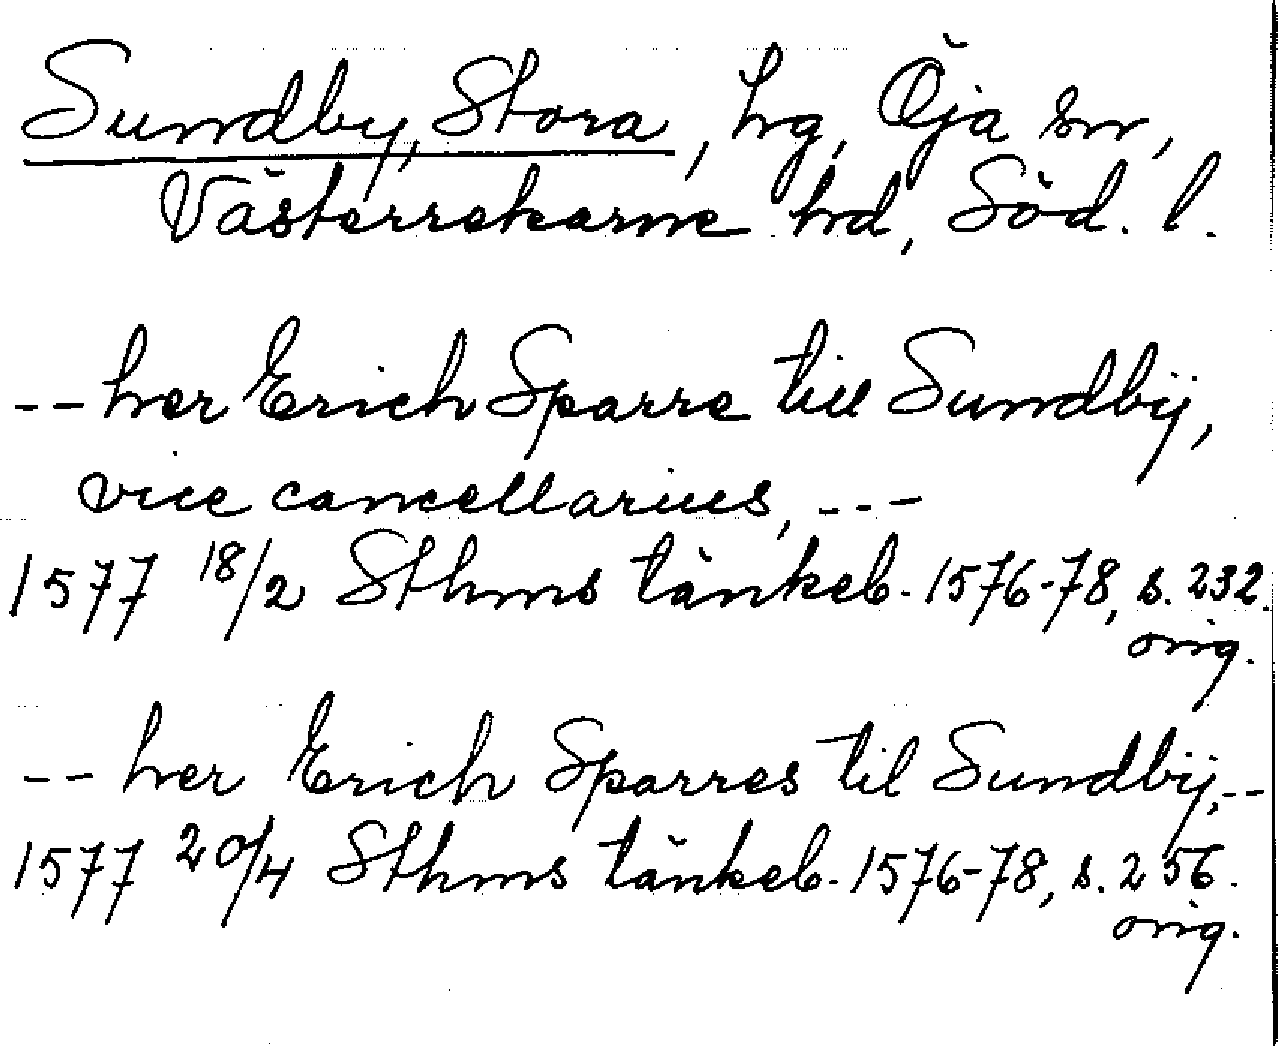 Sundby, Stora, hg, Öja sn,
Västerrekarne hd, Söd. l.
-- her Erich Sparre till Sundbÿ,
vice cancellarius, ---
1577 18/2 Sthms tänkeb. 1576-78, s. 232.
orig.
-- her Erich Sparres til Sundbÿ, --
1577 20/4 Sthms tänkeb. 1576-78, s. 256.
orig.